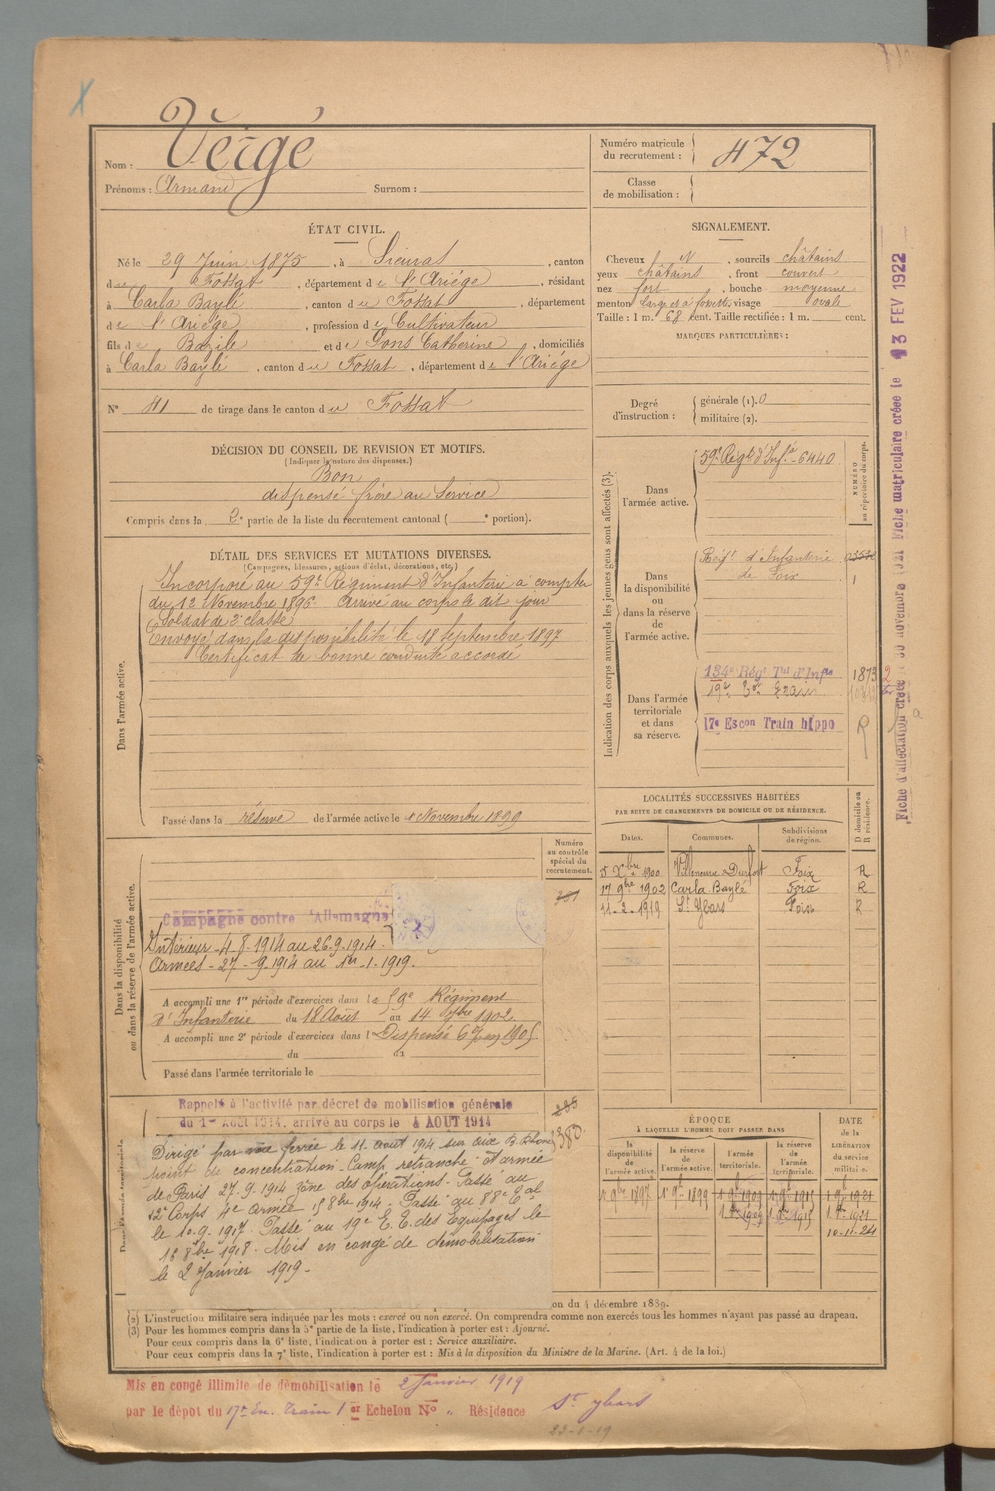 Vergé
Nom :
Prénoms : Armand Surnom :
Numéro matricule du recrutement : 472
Classe de mobilisation :
ÉTAT CIVIL.
Né le 29 Juin 1875, à Sieuras, canton
du Fossat, département de l'Ariége, résidant
à Carla Baylé, canton du Fossat, département
de l'Ariége, profession de Cultivateur
fils de Bazile et de Gons Catherine, domiciliés
à Carla Baylé, canton du Fossat, département de l'Ariége
N° 41 de tirage dans le canton du Fossat
SIGNALEMENT.
Cheveux N, sourcils châtains
yeux châtains, front couvert
nez fort, bouche moyenne
menton large et à fossette, visage ovale
Taille : 1 m. 68 cent. Taille rectifiée : 1 m. cent.
MARQUES PARTICULIÈRES :
Degré d'instruction : générale (1). 0
militaire (2).
DÉCISION DU CONSEIL DE REVISION ET MOTIFS.
(Indiquer la nature des dispenses.)
Bon
dispensé frère au Service
Compris dans la 2e partie de la liste du recrutement cantonal ( e portion).
DÉTAIL DES SERVICES ET MUTATIONS DIVERSES.
(Campagnes, blessures, actions d'éclat, décorations, etc.)
Dans l'armée active.
Incorporé au 59e Régiment d'Infanterie à compter
du 12 Novembre 1896. Arrivé au corps le dit jour
Soldat de 2e classe
Envoyé dans la disponibilité le 18 Septembre 1897
Certificat de bonne conduite accordé
Passé dans la réserve de l'armée active le 1 Novembre 1899
Indication des corps auxquels les jeunes gens sont affectés (3).
NUMÉRO au répertoire du corps.
Dans l'armée active.
59e Régt d'Infie 6440
Dans la disponibilité ou dans la réserve de l'armée active.
Régt d'Infanterie
de Foix
Dans l'armée territoriale et dans sa réserve.
134e Régt Tal d'Infie 1873
17e Escon Train hippo R
Fiche matriculaire créée le 13 FEV 1922
LOCALITÉS SUCCESSIVES HABITÉES
PAR SUITE DE CHANGEMENTS DE DOMICILE OU DE RÉSIDENCE.
Dates. Communes. Subdivisions de région. D domicile ou R résidence.
5 Xbre 1900 Villeneuve Durfort Foix R
17 9bre 1902 Carla Baylé Foix R
11-2-1919 St Ybars Foix R
Numéro au contrôle spécial du recrutement.
Dans la disponibilité ou dans la réserve de l'armée active.
Campagne contre l'Allemagne
Intérieur - 4-8-1914 au 26-9-1914
Armées - 27-9-1914 au 1er-1-1919.
A accompli une 1re période d'exercices dans le 59e Régiment
d'Infanterie du 18 Août au 14 7bre 1902
A accompli une 2e période d'exercices dans l Dispensé 1905.
du au
Passé dans l'armée territoriale le
Rappelé à l'activité par décret de mobilisation générale
du 1er Août 1914, arrivé au corps le 4 AOUT 1914
Dirigé par voie ferrée le 11 août 1914 sur Aix B. Rhône
point de concentration - Camp retranché et armée
de Paris 27-9-1914 zône des opérations - Passé au
12e Corps 4e armée 1914. Passé au 88e
le 10.9.1917. Passé au 19e E. E. des Equipages le
1918. Mis en congé de démobilisation
le 2 Janvier 1919.
380
ÉPOQUE
À LAQUELLE L'HOMME DOIT PASSER DANS
la disponibilité de l'armée active. la réserve de l'armée active. l'armée territoriale. la réserve de l'armée territoriale. DATE de la LIBÉRATION DU SERVICE militaire.
1 9bre 1897 1 9bre 1899 1 9bre 1909 1 9bre 1915 1 9bre 1921
10-11-24
on du 4 décembre 1889.
(2) L'instruction militaire sera indiquée par les mots : exercé ou non exercé. On comprendra comme non exercés tous les hommes n'ayant pas passé au drapeau.
(3) Pour les hommes compris dans la 5e partie de la liste, l'indication à porter est : Ajourné.
Pour ceux compris dans la 6e liste, l'indication à porter est : Service auxiliaire.
Pour ceux compris dans la 7e liste, l'indication à porter est : Mis à la disposition du Ministre de la Marine. (Art. 4 de la loi.)
Mis en congé illimité de démobilisation le 2 Janvier 1919
par le dépot du 17e En. Train 1er Echelon No " Résidence St ybars
23-1-19